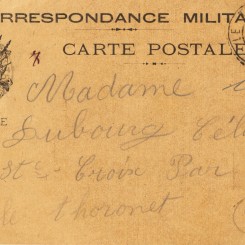 CORRESPONDANCE MILITA
CARTE POSTALE
Madame
Dubourg Cél
Ste Croix Par
le Thoronet